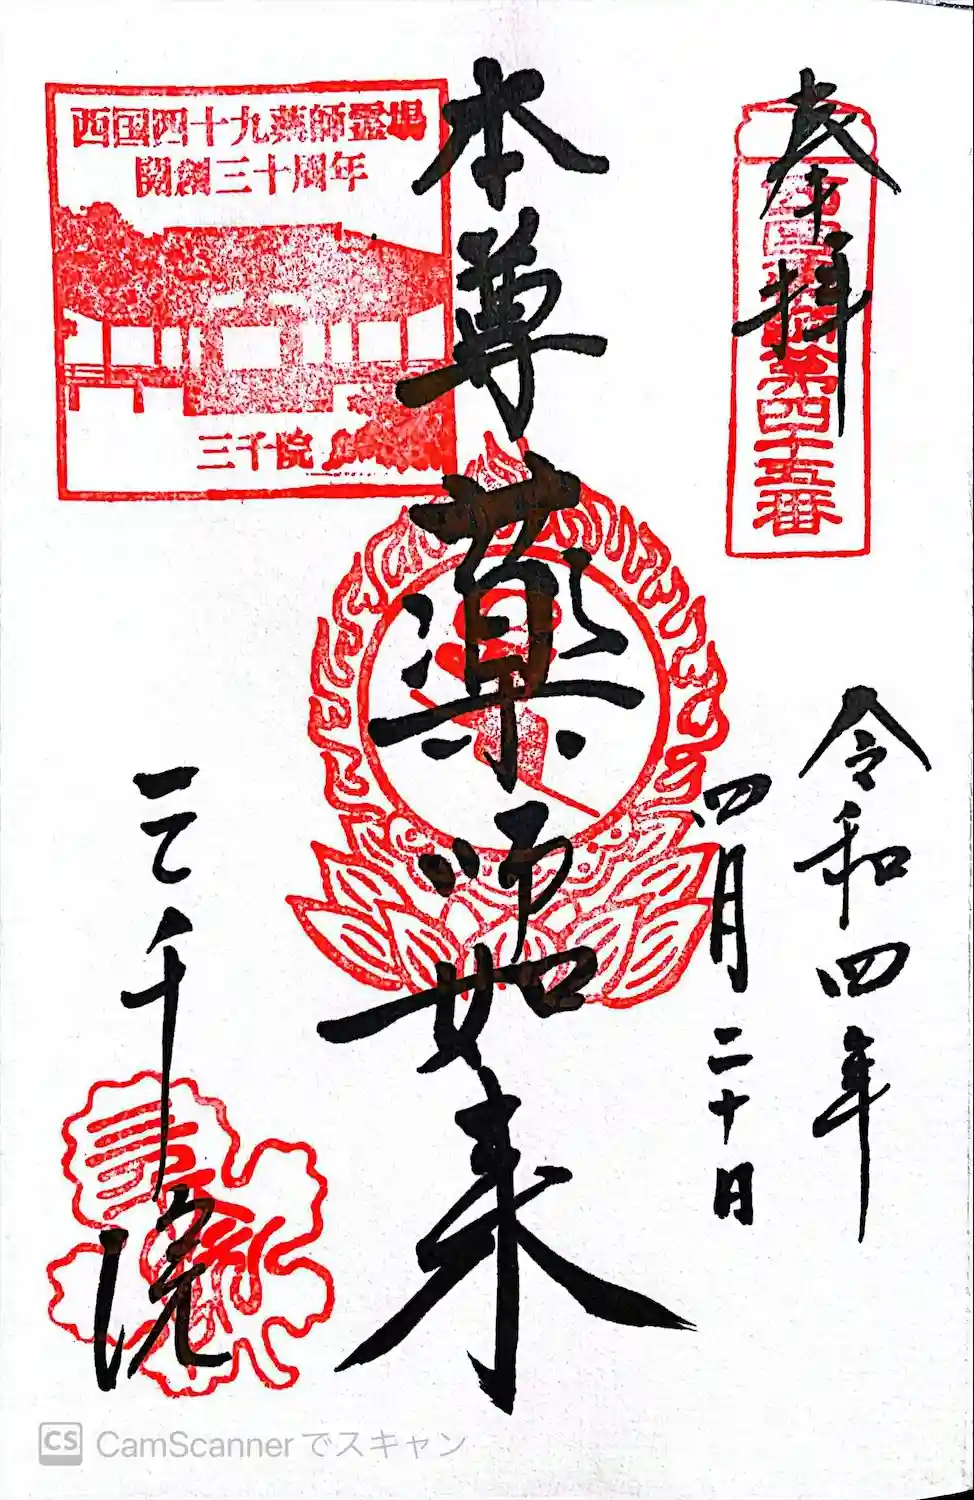 奉拝
西国薬師第四十五番
令和四年
四月二十日
本尊
薬師如来
西国四十九薬師霊場
開創三十周年
三千院
三千院
CS CamScannerでスキャン